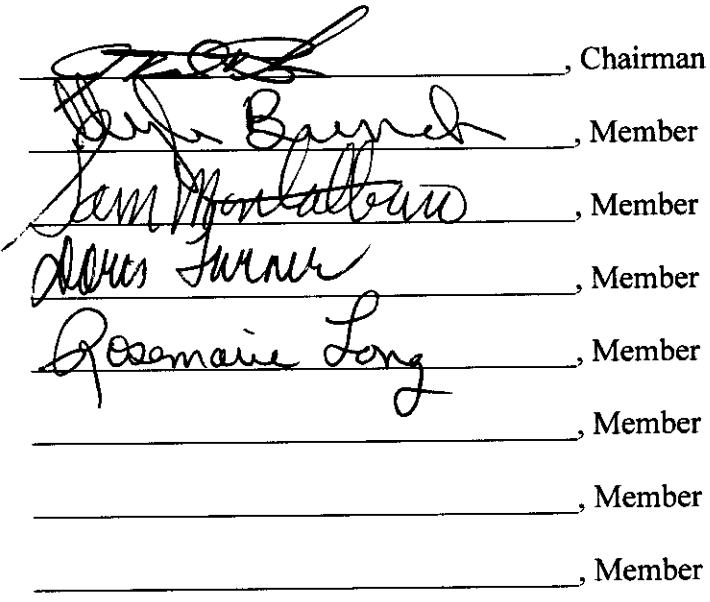 , Chairman
, Member
Sam Montalbano, Member
Doris Turner, Member
Rosemarie Long, Member
, Member
, Member
, Member